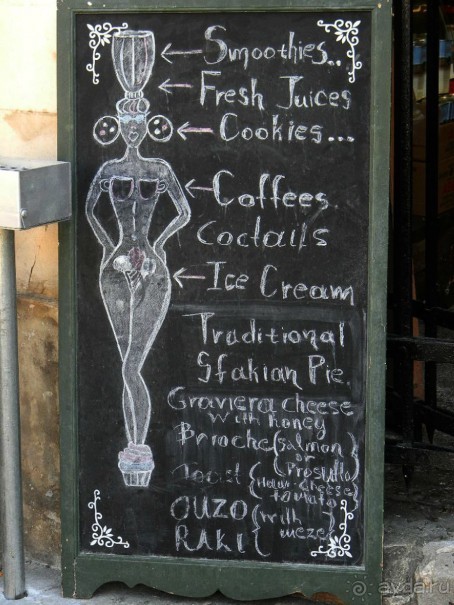 Smoothies..
Fresh Juices
Cookies...
Coffees
Coctails
Ice Cream
Traditional
Sfakian Pie.
Graviera cheese
with honey
Brioche (salmon
or
Prosuitto)
Toast (Ham-cheese
tomato)
OUZO (with
RAKI meze)
ayda.ru